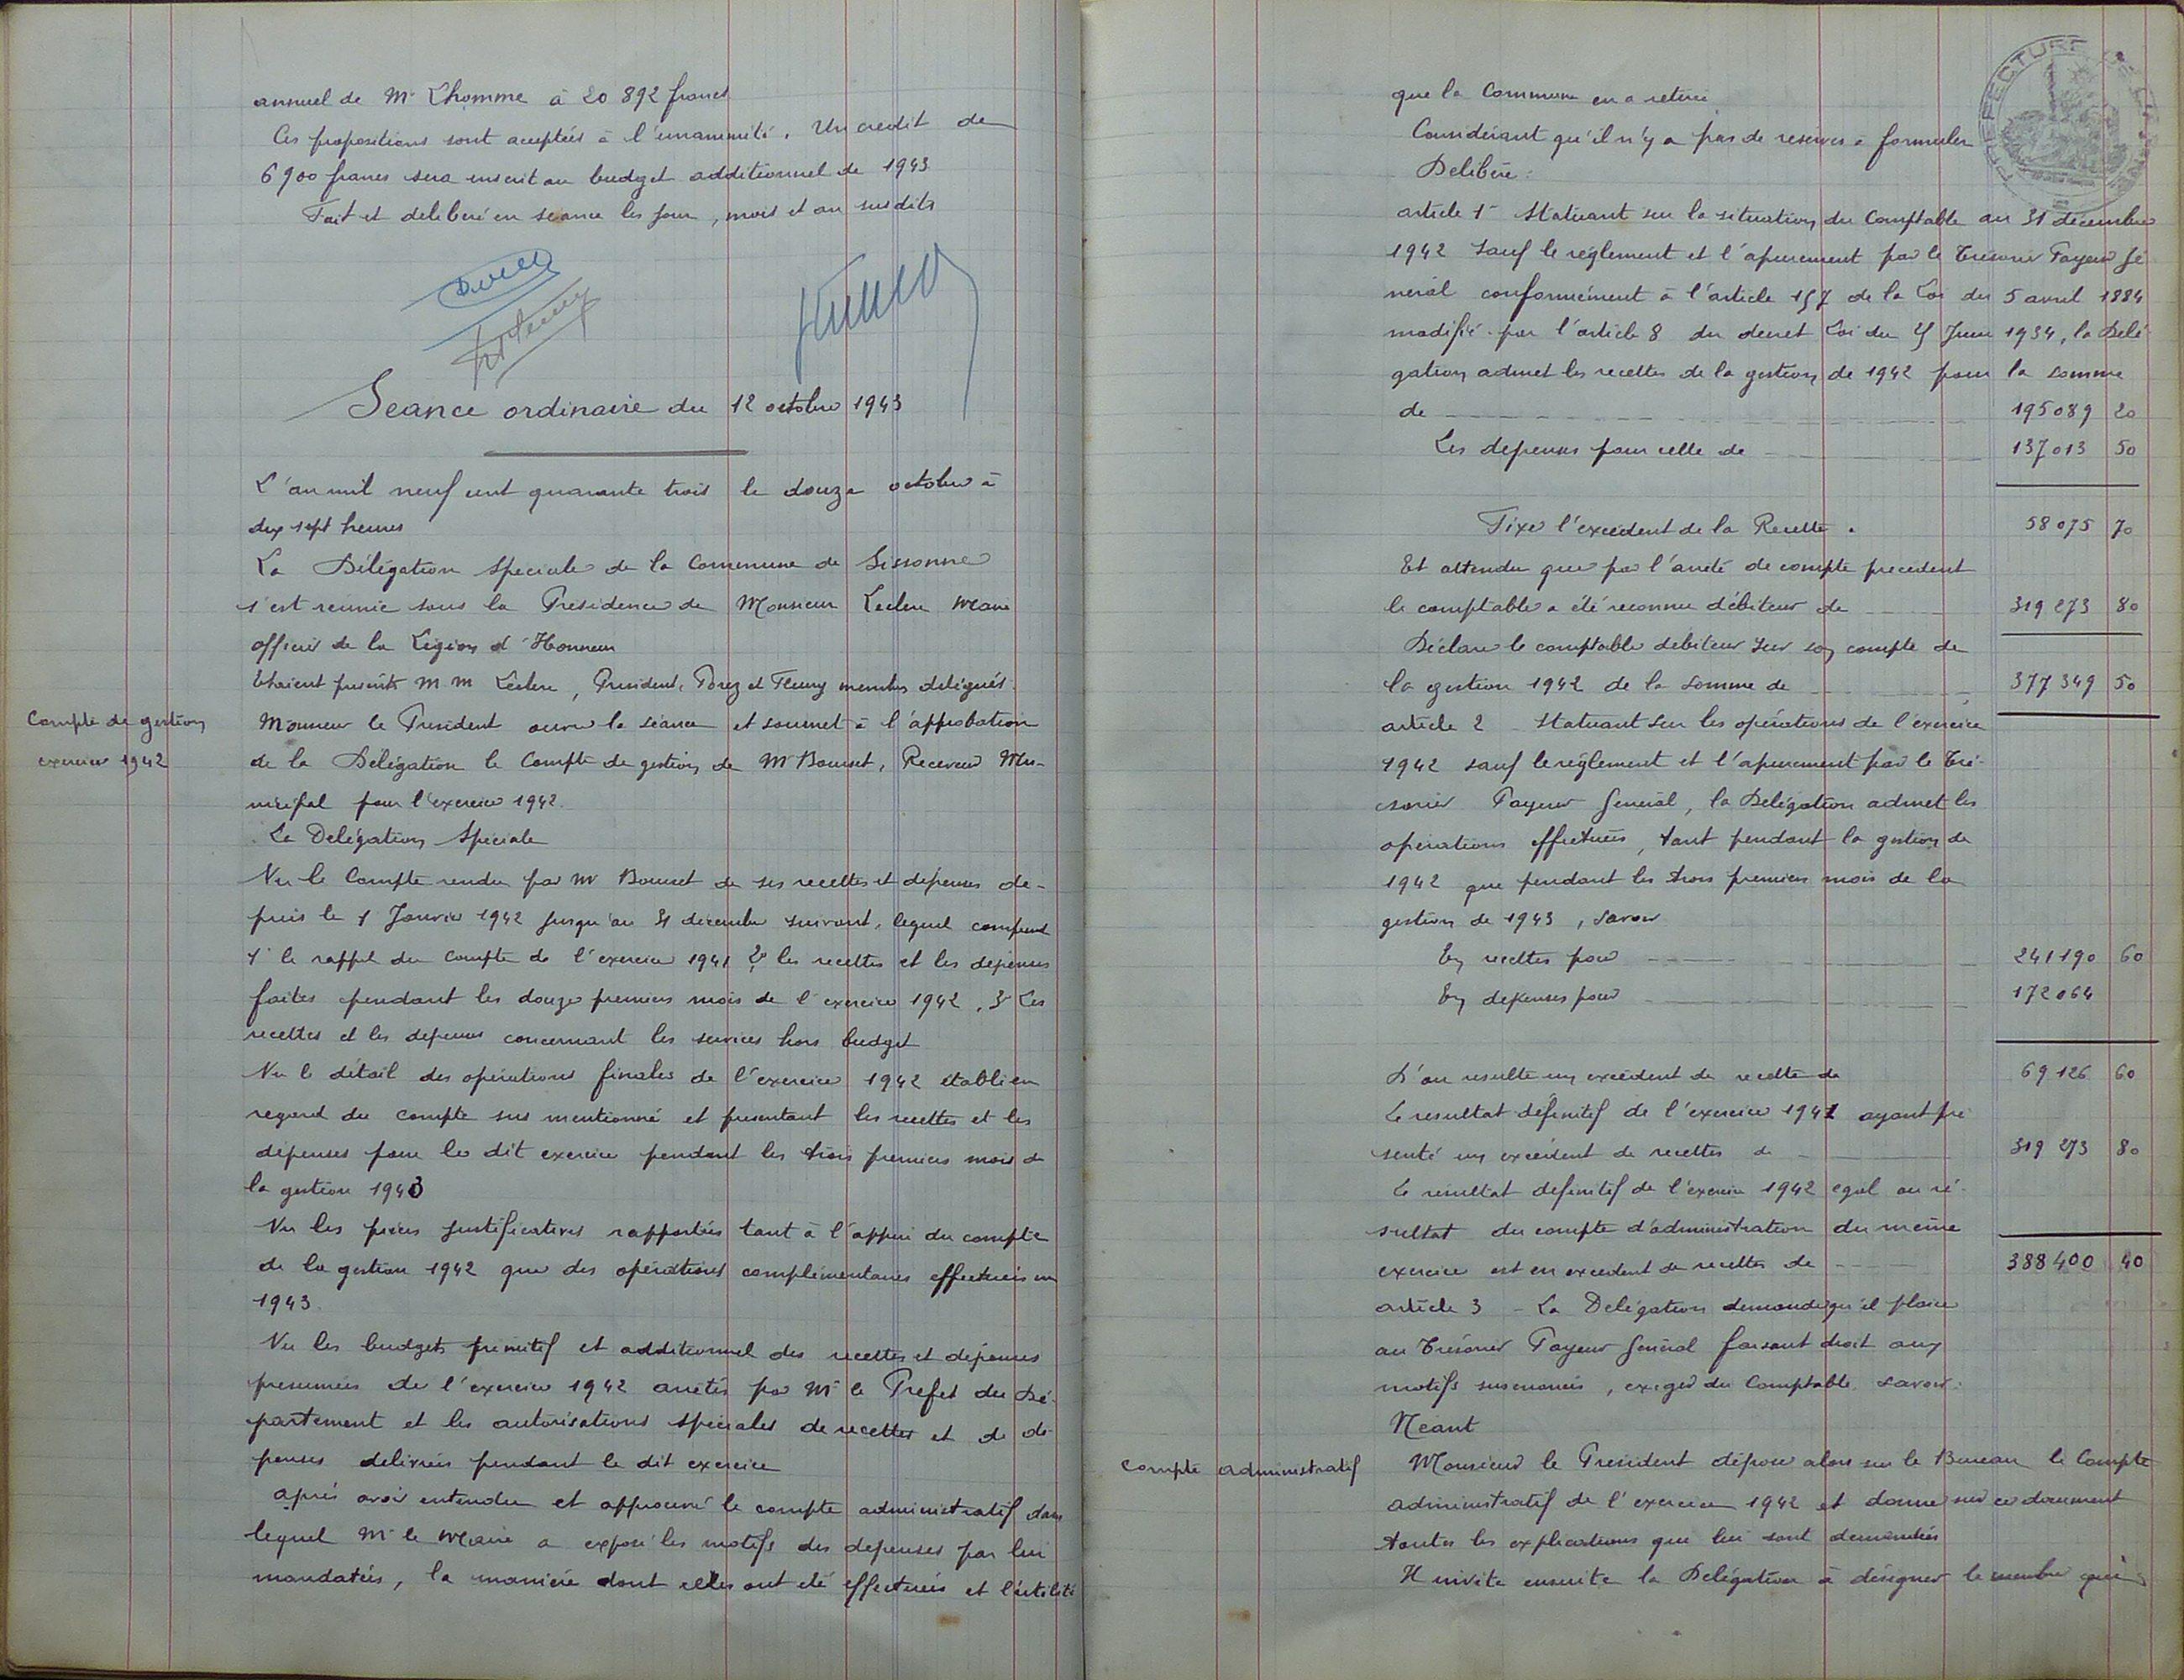 annuel de Mr Lhomme à 20 892 francs
Ces propositions sont acceptées à l'unanimité. Un credit de
6900 francs sera inscrit au budget additionnel de 1943
Fait et deliberé en seance les jour, mois et an susdits
Seance ordinaire du 12 octobre 1943
L'an mil neuf cent quarante trois le douze octobre à
dix sept heures
La Délégation Speciale de la Commune de Sissonne
s'est reunie sous la Présidence de Monsieur Leclere Maire
officier de la Légion d'Honneur
Etaient présents M.M Leclere, President, Porez et Fleury membres délégués.
Compte de gestion
exercice 1942
Monsieur le President ouvre la séance et soumet à l'approbation
de la Delégation le Compte de gestion de Mr Bourset, Receveur Mu-
nicipal pour l'exercice 1942.
La Delégation Speciale
Vu le Compte rendu par Mr Bourset de ses recettes et depenses de-
puis le 1 Janvier 1942 jusqu'au 31 décembre suivant, lequel comprend
1° le rappel du compte de l'exercice 1941 2° les recettes et les depenses
faites pendant les douze premiers mois de l'exercice 1942, 3° Les
recettes et les depenses concernant les services hors budget
Vu le détail des opérations finales de l'exercice 1942 établi en
regard du compte sus mentionné et presentant les recettes et les
dépenses pour le dit exercice pendant les trois premiers mois de
la gestion 1943
Vu les pièces justificatives rapportées tant à l'appui du compte
de la gestion 1942 que des opérations complémentaires effectuées en
1943.
Vu les budgets primitif et additionnel des recettes et dépenses
presumées de l'exercice 1942 arrêtés par Mr le Prefet du Dé-
partement et les autorisations spéciales de recettes et de dé-
penses delivrées pendant le dit exercice
après avoir entendu et approuvé le compte administratif dans
lequel Mr le Maire a exposé les motifs des depenses par lui
mandatées, la manière dont elles ont été effectuées et l'utilité
que la Commune en a retirée
Considérant qu'il n'y a pas de reserves à formuler
Delibère:
article 1er Statuant sur la situation du Comptable au 31 décembre
1942 sauf le réglement et l'apurement par le Trésorier Payeur Gé
néral conformément à l'article 157 de la Loi du 5 avril 1884
modifié par l'article 8 du decret Loi du 25 Juin 1934, la Délé
gation admet les recettes de la gestion de 1942 pour la somme
de 195089 20
Les depenses pour celle de 137013 50
Fixe l'excédent de la Recette. 58075 70
Et attendu que par l'arrêté de compte precedent
le comptable a été reconnu débiteur de 319 273 80
Déclare le comptable debiteur sur son compte de
la gestion 1942 de la somme de 377 349 50
article 2 - Statuant sur les opérations de l'exercice
1942 sauf le réglement et l'apurement par le Tré-
sorier Payeur Général, la Delégation admet les
opérations effectuées, tant pendant la gestion de
1942 que pendant les trois premiers mois de la
gestion de 1943, savoir
En recettes pour 241190 60
En depenses pour 172064
D'ou resulte un excédent de recette de 69 126 60
Le resultat définitif de l'exercice 1941 ayant pré
senté un excédent de recettes de 319 273 80
Le resultat definitif de l'exercice 1942 egal au ré-
sultat du compte d'administration du même
exercice est en excedent de recettes de 388 400 40
article 3 - La Delégation demande qu'il plaise
au Trésorier Payeur Général faisant droit aux
motifs susenoncés, exiger du Comptable. savoir:
Néant
Compte administratif
Monsieur le President dépose alors sur le Bureau le Compte
administratif de l'exercice 1942 et donne sur ce document
toutes les explications que lui sont demandées
Il invite ensuite la Delégation à désigner le membre qui